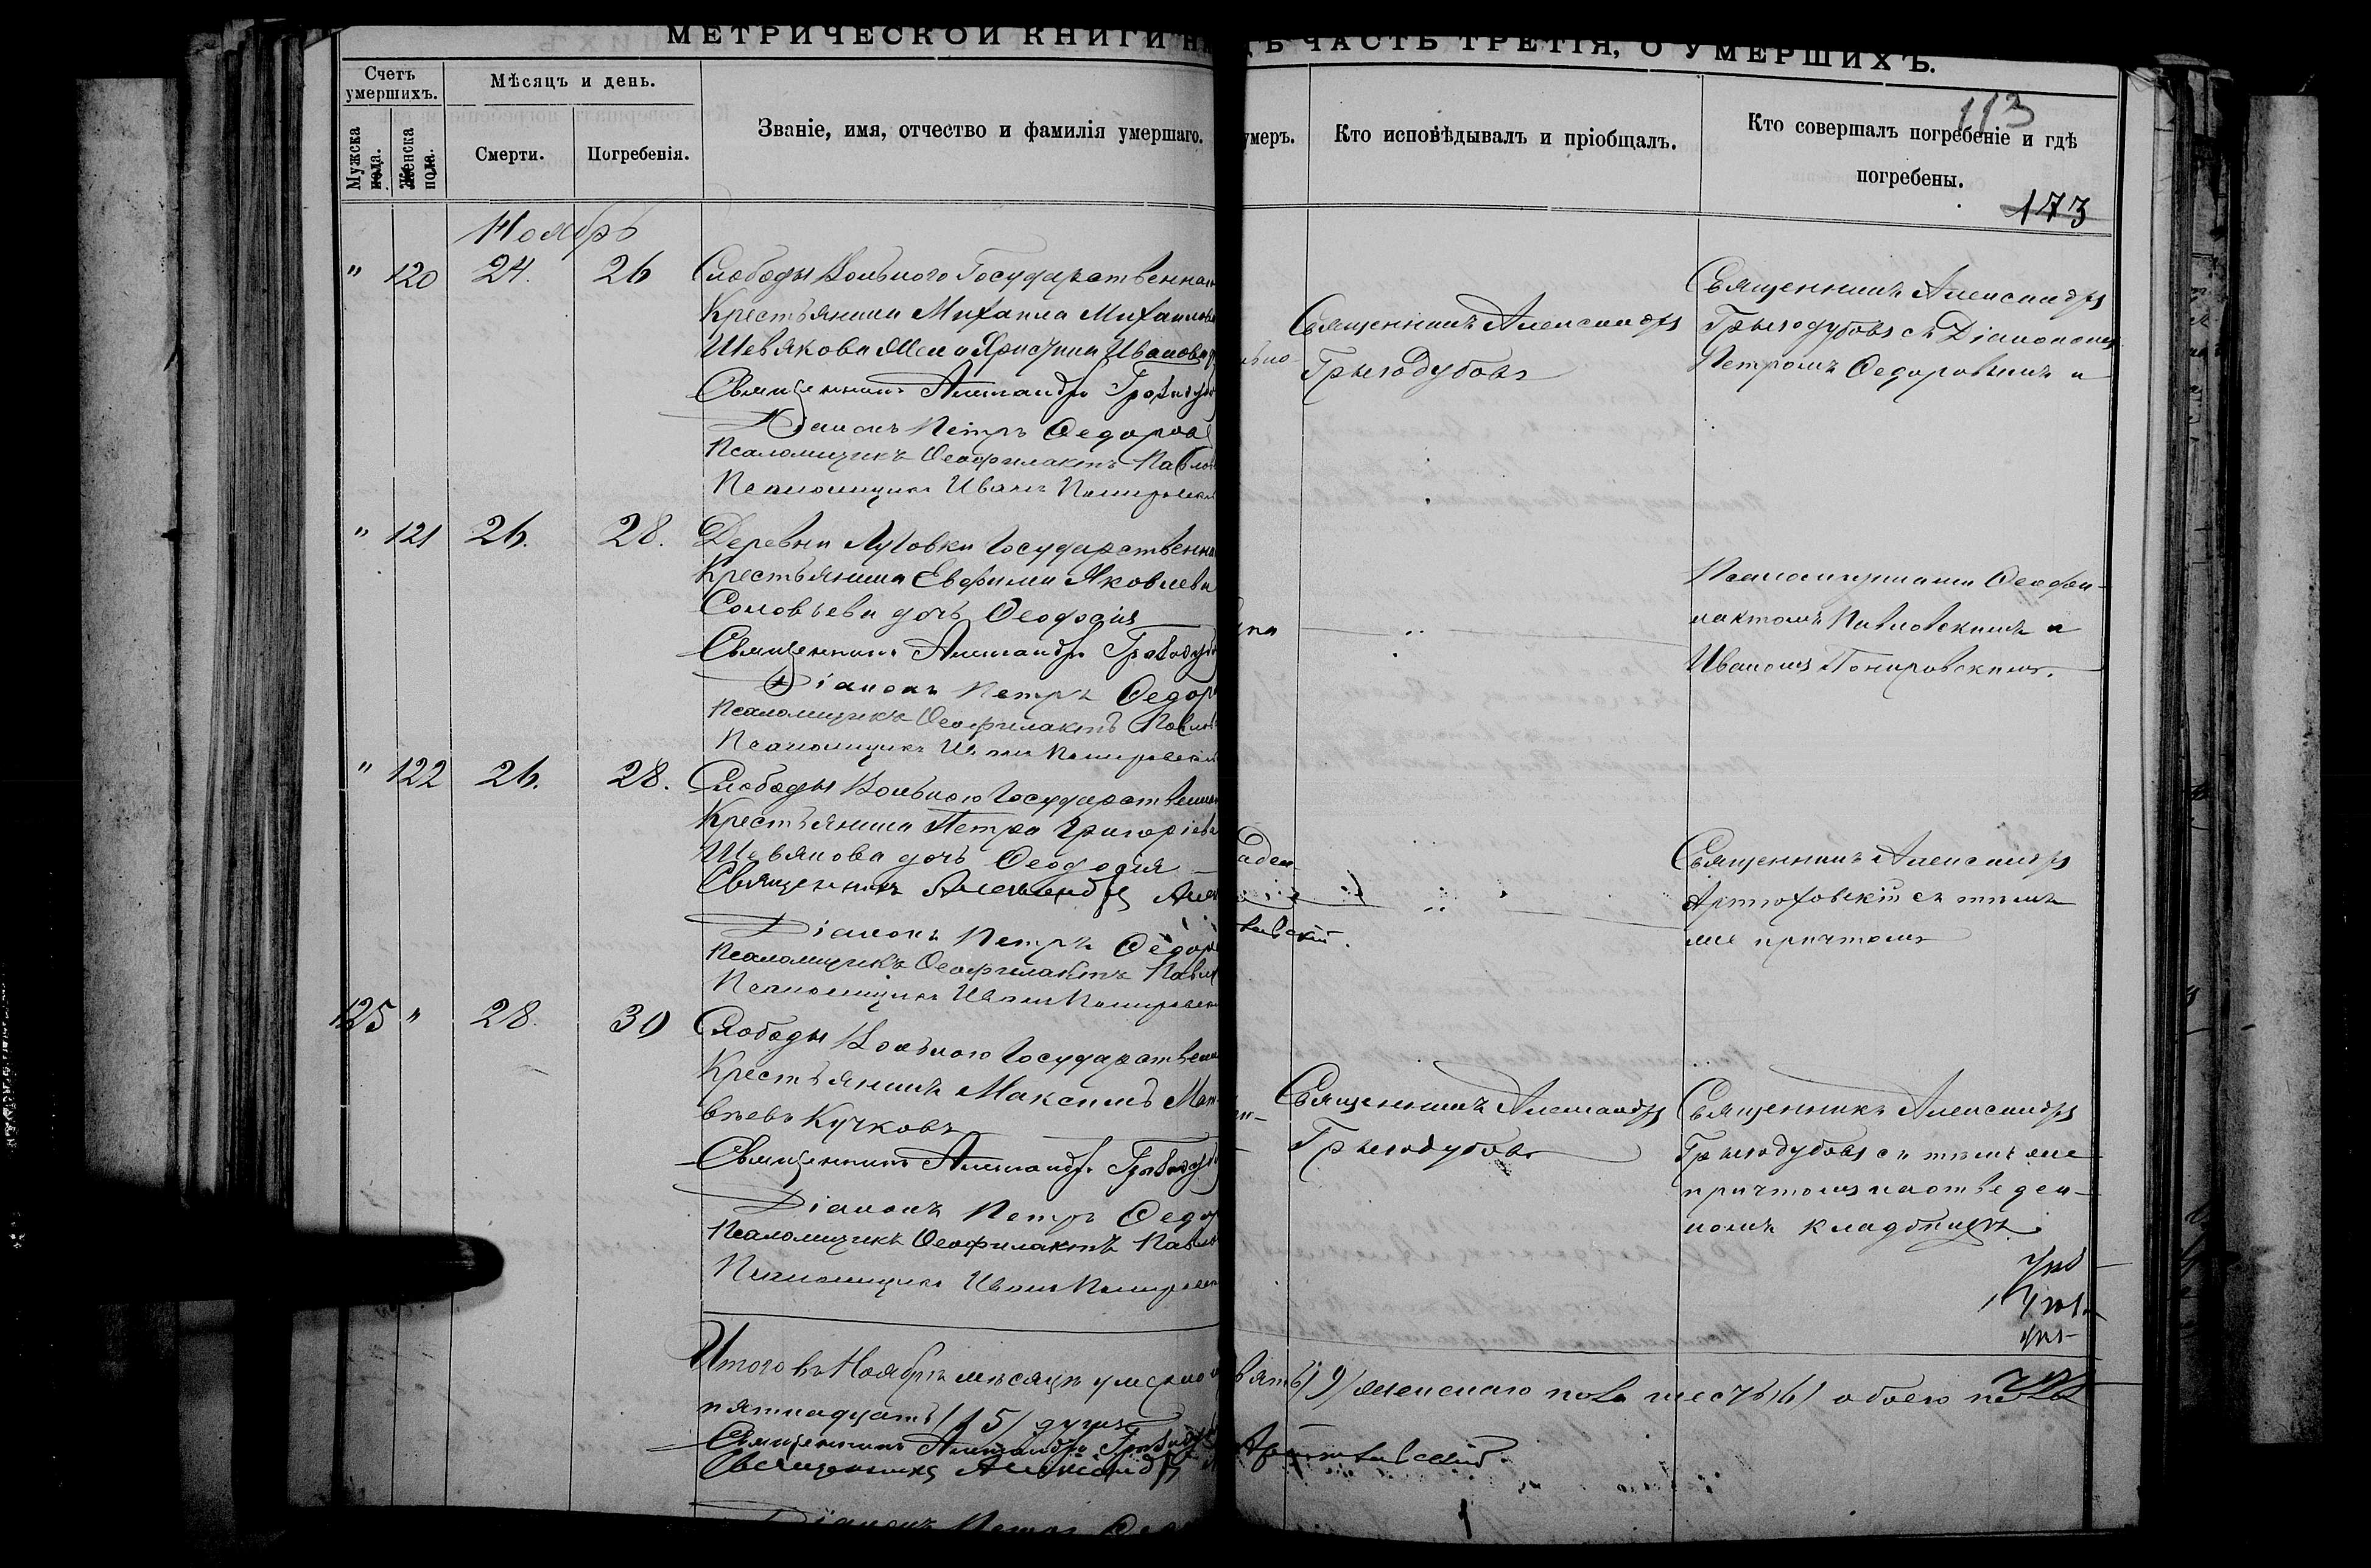 МЕТРИЧЕСКОЙ КНИГИ
ЧАСТЬ ТРЕТІЯ, О УМЕРШИХЪ.
Счетъ умершихъ.
Мѣсяцъ и день.
Званіе, имя, отчество и фамилія умершаго.
Мужска пола.
Женска пола.
Смерти.
Погребенія.
умеръ.
Кто исповѣдывалъ и пріобщалъ.
Кто совершалъ погребеніе и гдѣ
погребены.
113
173
Ноябрь
" 120 24. 26 Слободы Вольного Государственна
Крестьянина Михаила Михаилов
Шевякова жена Христина Иванова
Священникъ Александръ
Діаконъ Петръ Ѳедоров
Псаломщикъ Ѳеофилактъ Павлов
Псаломщикъ Иванъ Понировск
Священникъ Александръ
Грызодубовъ
Священникъ Александръ
Грызодубовъ съ Діакономъ
Петромъ Ѳедоровымъ и
" 121 26. 28. Деревни Луговки Государственна
Крестьянина Евфимія Яковлева
Соловьева дочь Ѳеодосія
Священникъ Александръ
Діаконъ Петръ Ѳедор
Псаломщикъ Ѳеофилактъ Павлов
Псаломщикъ Иванъ Понировскі
Псаломщиками Ѳеофи-
лактомъ Павловскимъ и
Иваномъ Понировскимъ.
" 122 26. 28. Слободы Вольного Государственна
Крестьянина Петра Григоріева
Шевякова дочь Ѳеодосія
Священникъ Александръ
Діаконъ Петръ Ѳедор
Псаломщикъ Ѳеофилактъ Павло
Псаломщикъ Иванъ Понировск
Священникъ Александръ
Артюховскій съ тѣмъ
же причтомъ
125 " 28. 30 Слободы Вольного Государственн
Крестьянинъ Максимъ Мат-
вѣевъ Кучковъ
Священникъ Александръ
Діаконъ Петръ Ѳедор
Псаломщикъ Ѳеофилактъ Павло
Псаломщикъ Иванъ Понировск
Священникъ Александръ
Грызодубовъ
Священникъ Александръ
Грызодубовъ съ тѣмъ же
причтомъ на отведен-
номъ кладбищѣ.
Итого въ Ноябрѣ мѣсяцѣ умерло
вять) 9) женскаго пола шесть (6) обоего пола
пятнадцать (15) душъ
Священникъ Александръ
Священникъ Александръ
Діаконъ Петръ